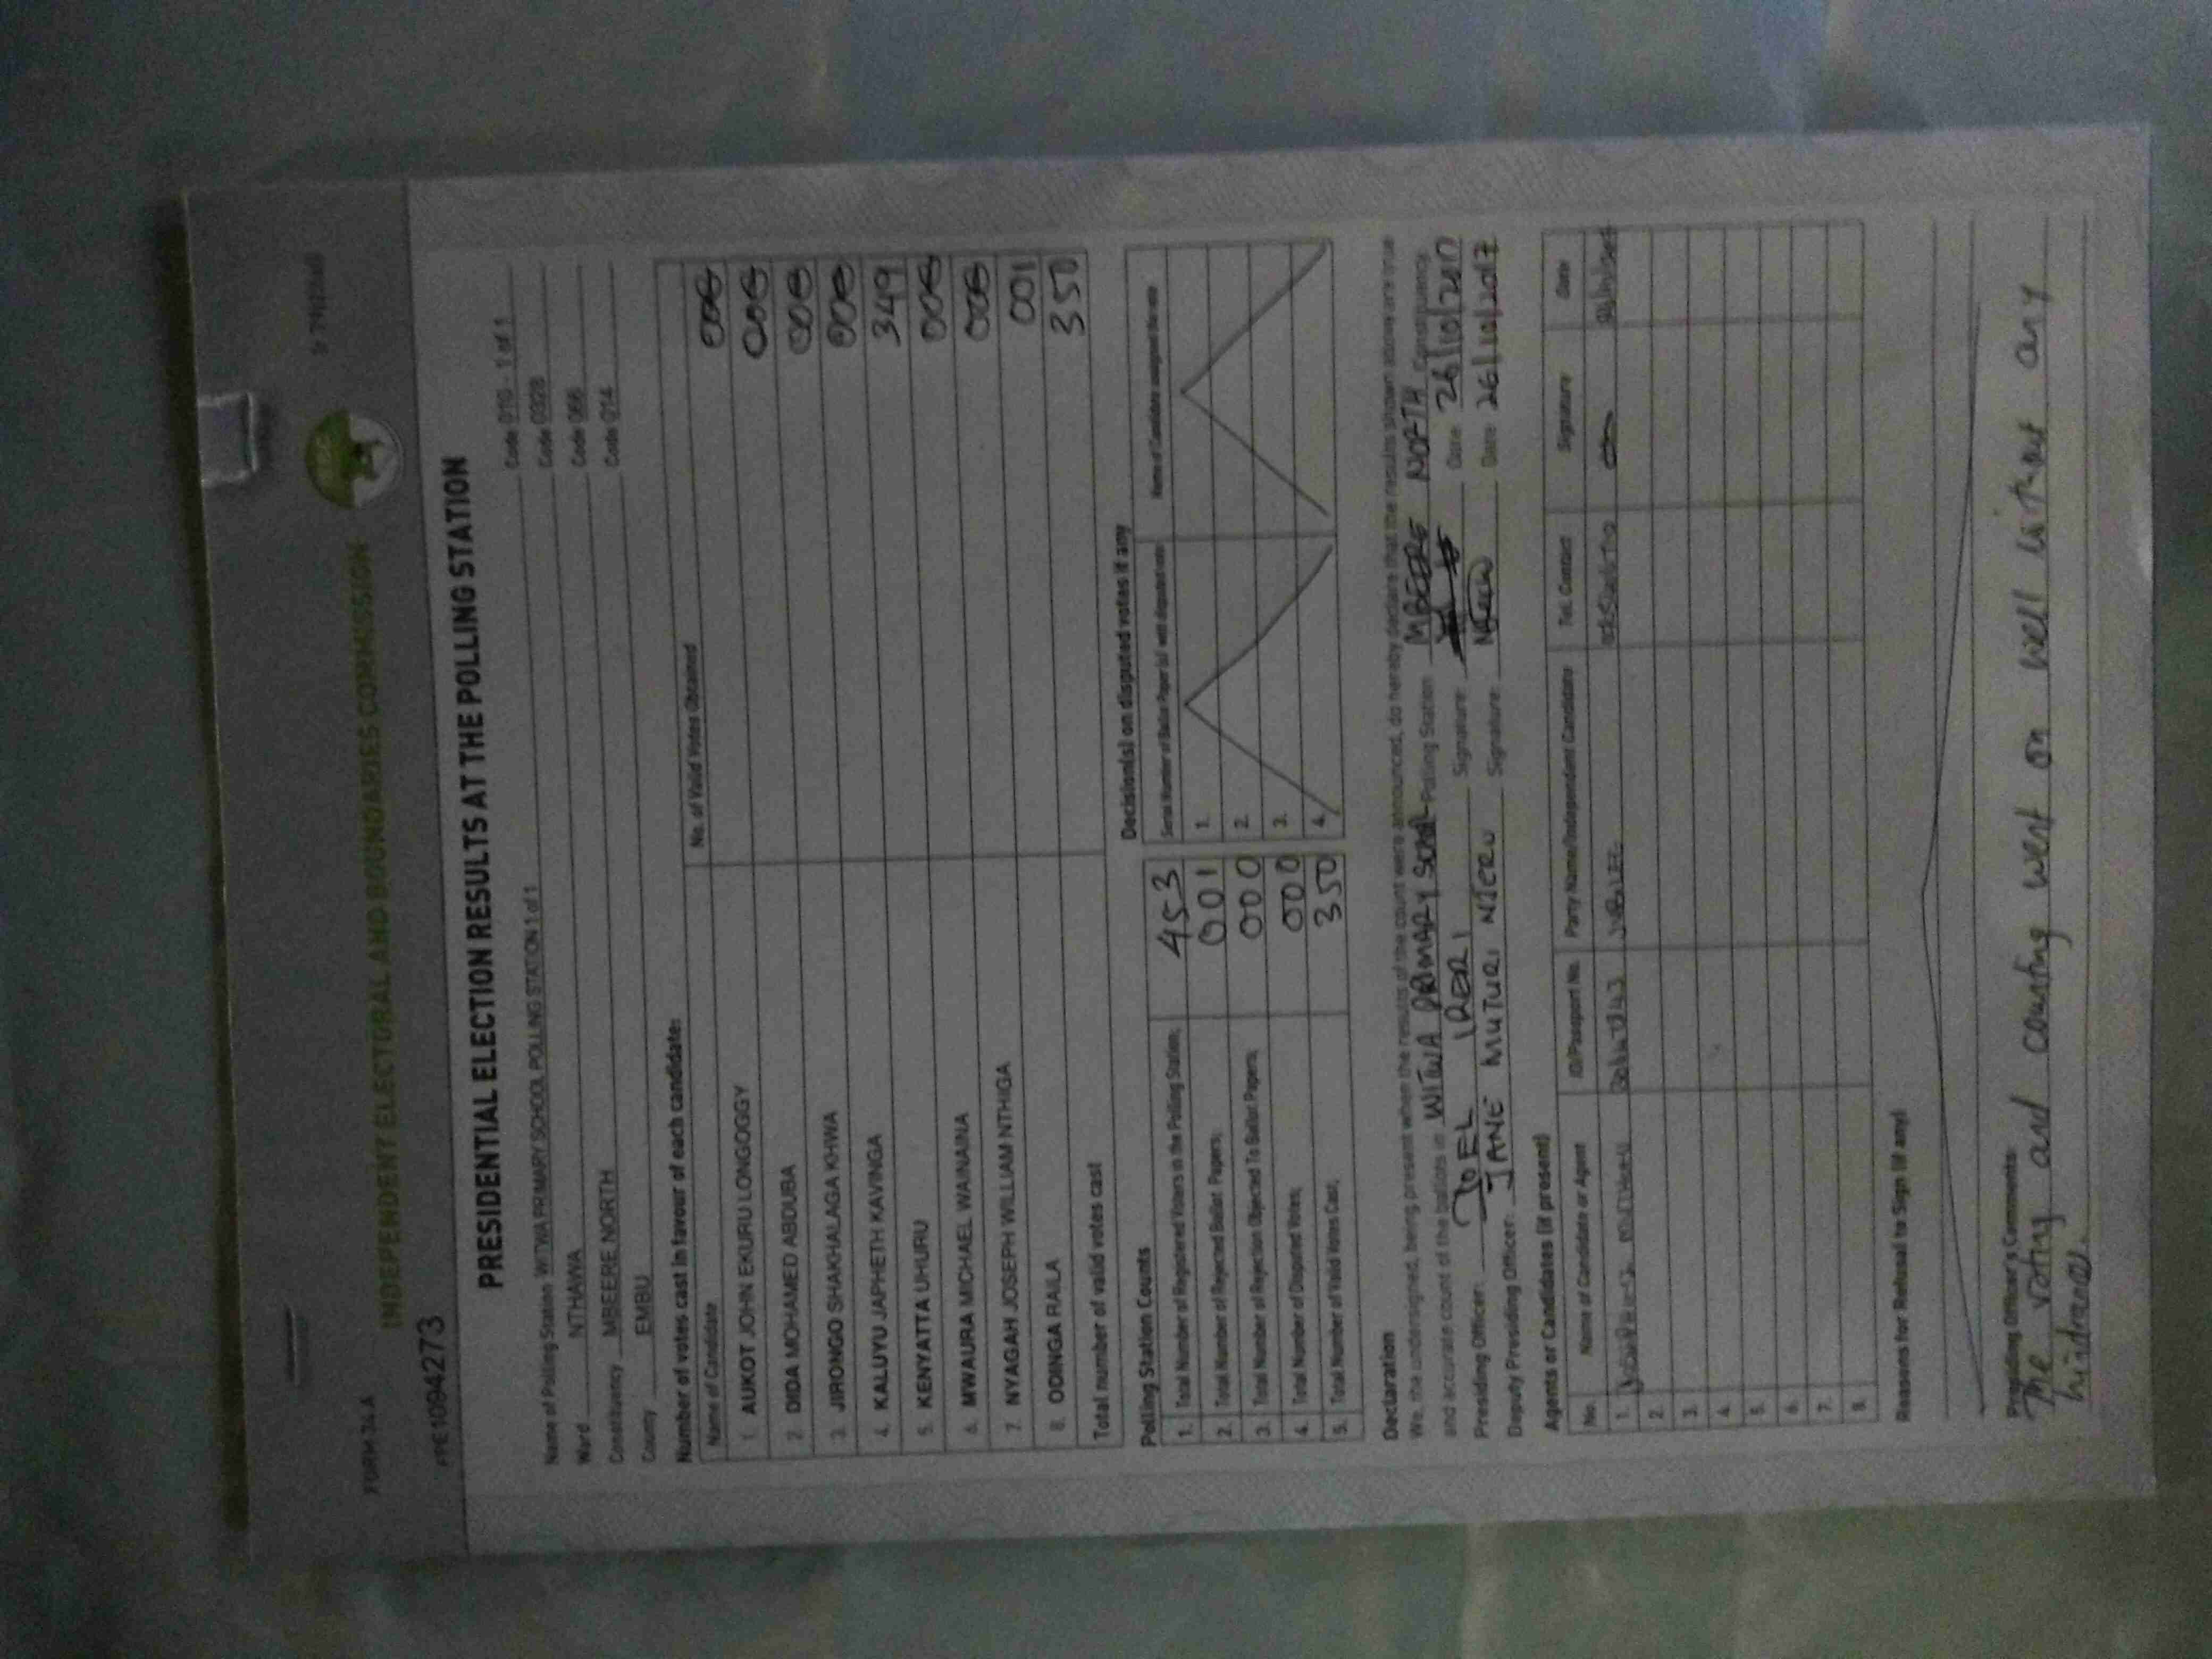 FORM 34A
INDEPENDENT ELECTORAL AND BOUNDARIES COMMISSION
PRE1094273
PRESIDENTIAL ELECTION RESULTS AT THE POLLING STATION
Name of Polling Station WITWA PRIMARY SCHOOL POLLING STATION 1 of 1 Code 010 - 1 of 1
Ward NTHAWA Code 0328
Constituency MBEERE NORTH Code 066
County EMBU Code 014
Number of votes cast in favour of each candidate:
Name of Candidate No. of Valid Votes Obtained
1. AUKOT JOHN EKURU LONGOGGY 000
2. DIDA MOHAMED ABDUBA 000
3. JIRONGO SHAKHALAGA KHWA 000
4. KALUYU JAPHETH KAVINGA 000
5. KENYATTA UHURU 349
6. MWAURA MICHAEL WAINAINA 000
7. NYAGAH JOSEPH WILLIAM NTHIGA 000
8. ODINGA RAILA 001
Total number of valid votes cast 350
Polling Station Counts
1. Total Number of Registered Voters in the Polling Station; 453
2. Total Number of Rejected Ballot Papers; 001
3. Total Number of Rejection Objected To Ballot Papers; 000
4. Total Number of Disputed Votes; 000
5. Total Number of Valid Votes Cast; 350
Decision(s) on disputed votes if any
Serial Number of Ballot Paper(s) with disputed vote Name of Candidate assigned the vote
1.
2.
3.
4.
Declaration
We, the undersigned, being present when the results of the count were announced, do hereby declare that the results shown above are true
and accurate count of the ballots in WITWA PRIMARY SCHOOL Polling Station MBEERE NORTH Constituency.
Presiding Officer: JOEL IRERI Signature: Date: 26/10/2017
Deputy Presiding Officer: JANE MUTURI NJERU Signature: Date: 26/10/2017
Agents or Candidates (if present)
No. Name of Candidate or Agent ID/Passport No. Party Name/Independent Candidate Tel. Contact Signature Date
1. JUBILEE
2.
3.
4.
5.
6.
7.
8.
Reasons for Refusal to Sign (if any)
Presiding Officer's Comments:
The voting and counting went on well without any
hindrance.